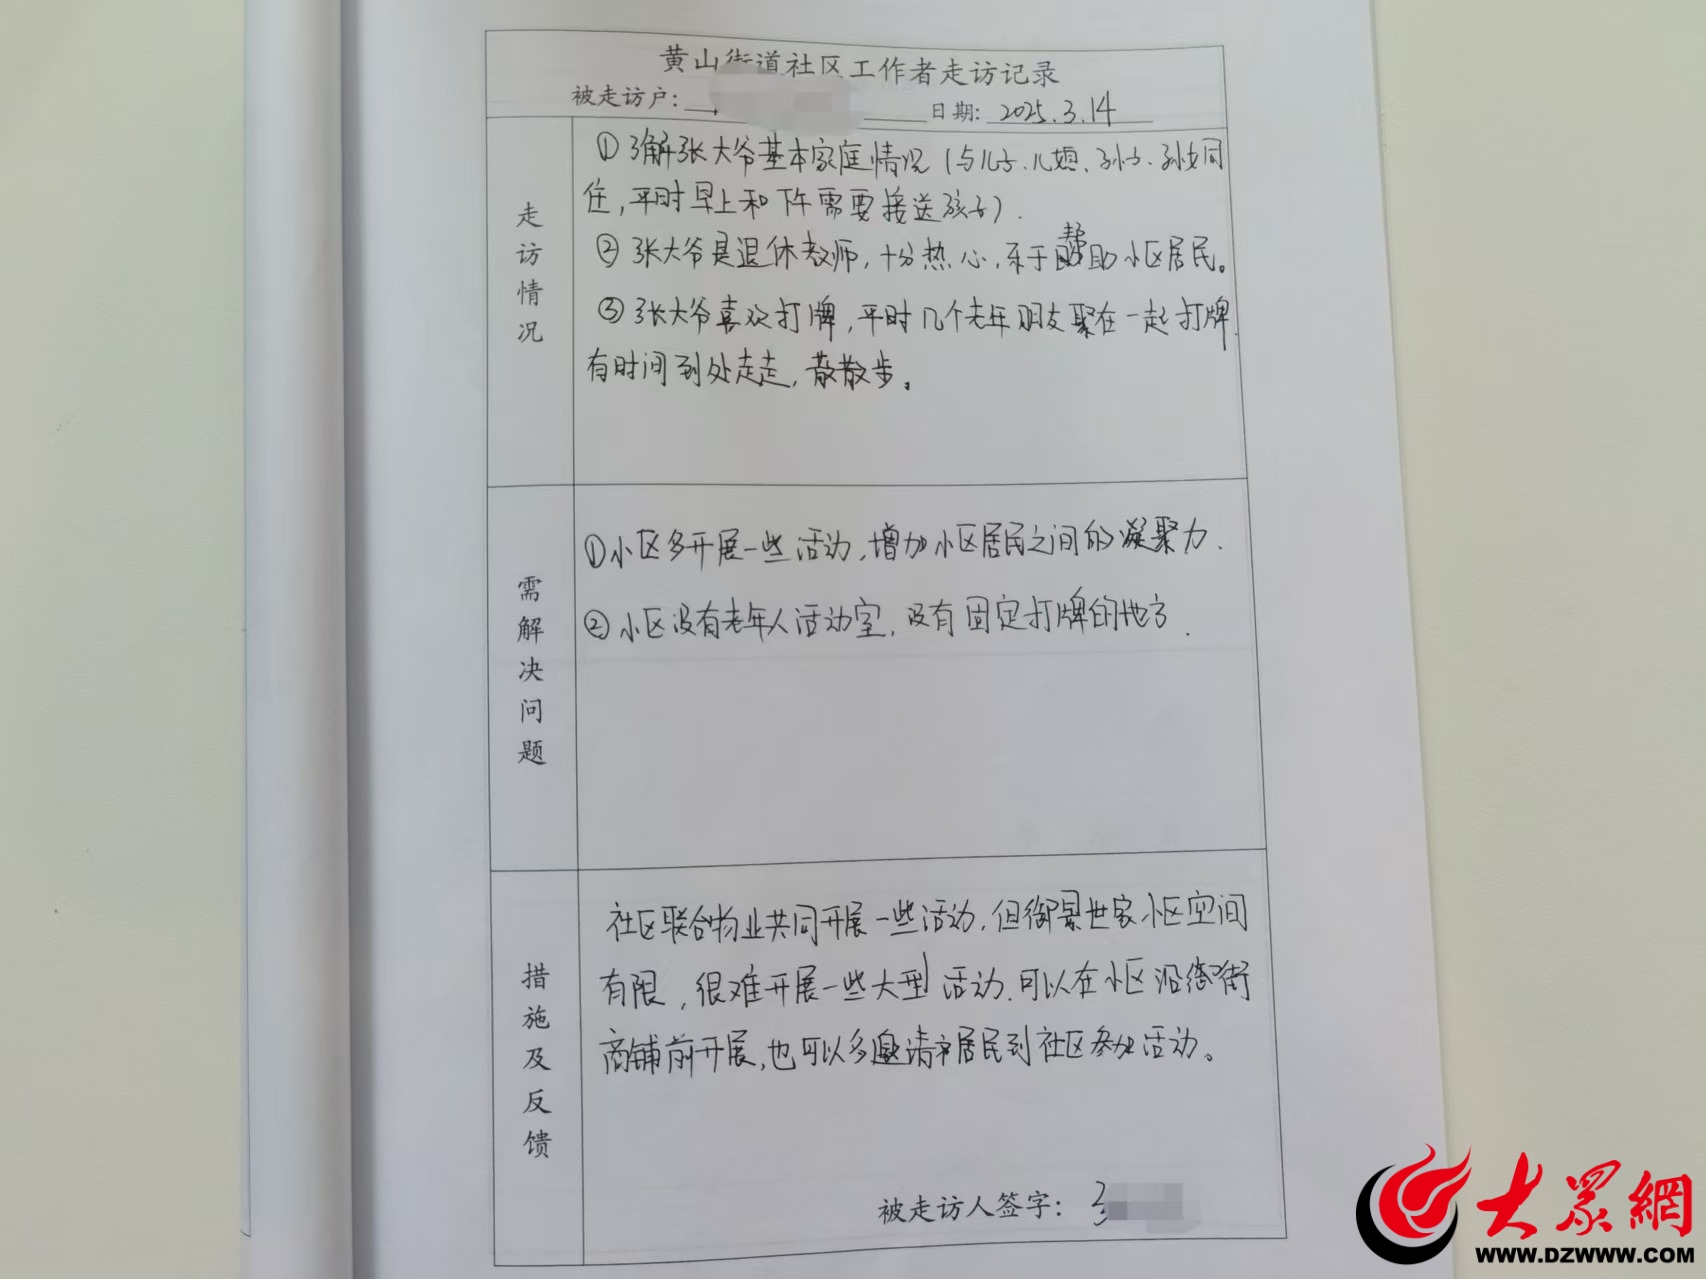 黄山街道社区工作者走访记录
被走访户：
日期：2025.3.14
走访情况
①了解张大爷基本家庭情况（与儿子、儿媳、孙子、孙女同
住，平时早上和下午需要接送孩子）.
②张大爷是退休教师，十分热心，乐于帮助小区居民。
③张大爷喜欢打牌，平时几个老年朋友聚在一起打牌.
有时间到处走走，散散步。
需解决问题
①小区多开展一些活动，增加小区居民之间的凝聚力.
②小区没有老年人活动室，没有固定打牌的地方.
措施及反馈
社区联合物业共同开展一些活动，但御景世家小区空间
有限，很难开展一些大型活动，可以在小区沿街
商铺前开展，也可以多邀请居民到社区参加活动。
被走访人签字：
大众網
WWW.DZWWW.COM